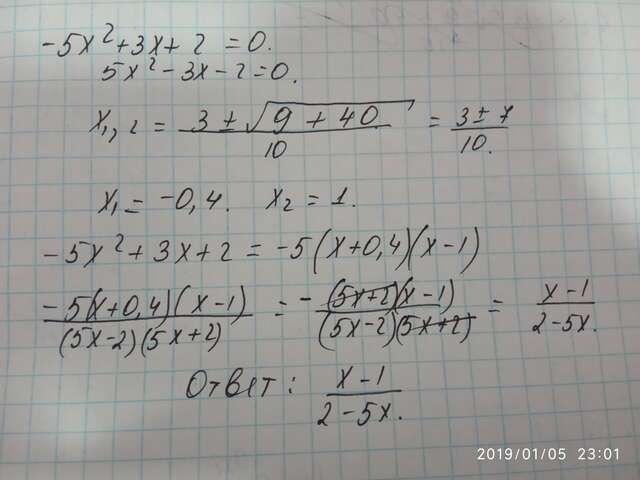 -5x²+3x+2 =0.
5x²-3x-2=0.
x₁,₂ = (3±√(9+40))/10 = (3±7)/10.
x₁=-0,4. x₂=1.
-5x²+3x+2=-5(x+0,4)(x-1)
(-5(x+0,4)(x-1))/((5x-2)(5x+2)) = -((5x+2)(x-1))/((5x-2)(5x+2)) = (x-1)/(2-5x).
Ответ: (x-1)/(2-5x).
2019/01/05 23:01